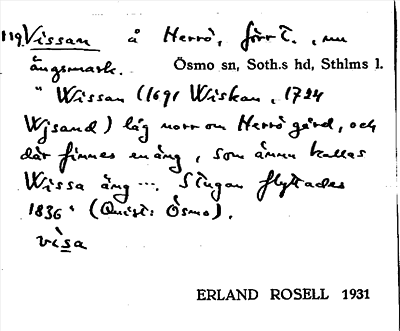 119. Vissan å Herrö, förr t., nu
ängsmark. Ösmo sn, Soth.s hd, Sthlms l.
"Wissan (1691 Wiskan, 1724
Wjsand) låg norr om Herrö gård, och
där finnes en äng, som ännu kallas
Wissa äng ... Stugan flyttades
1836" (Quist: Ösmo).
visa
ERLAND ROSELL 1931